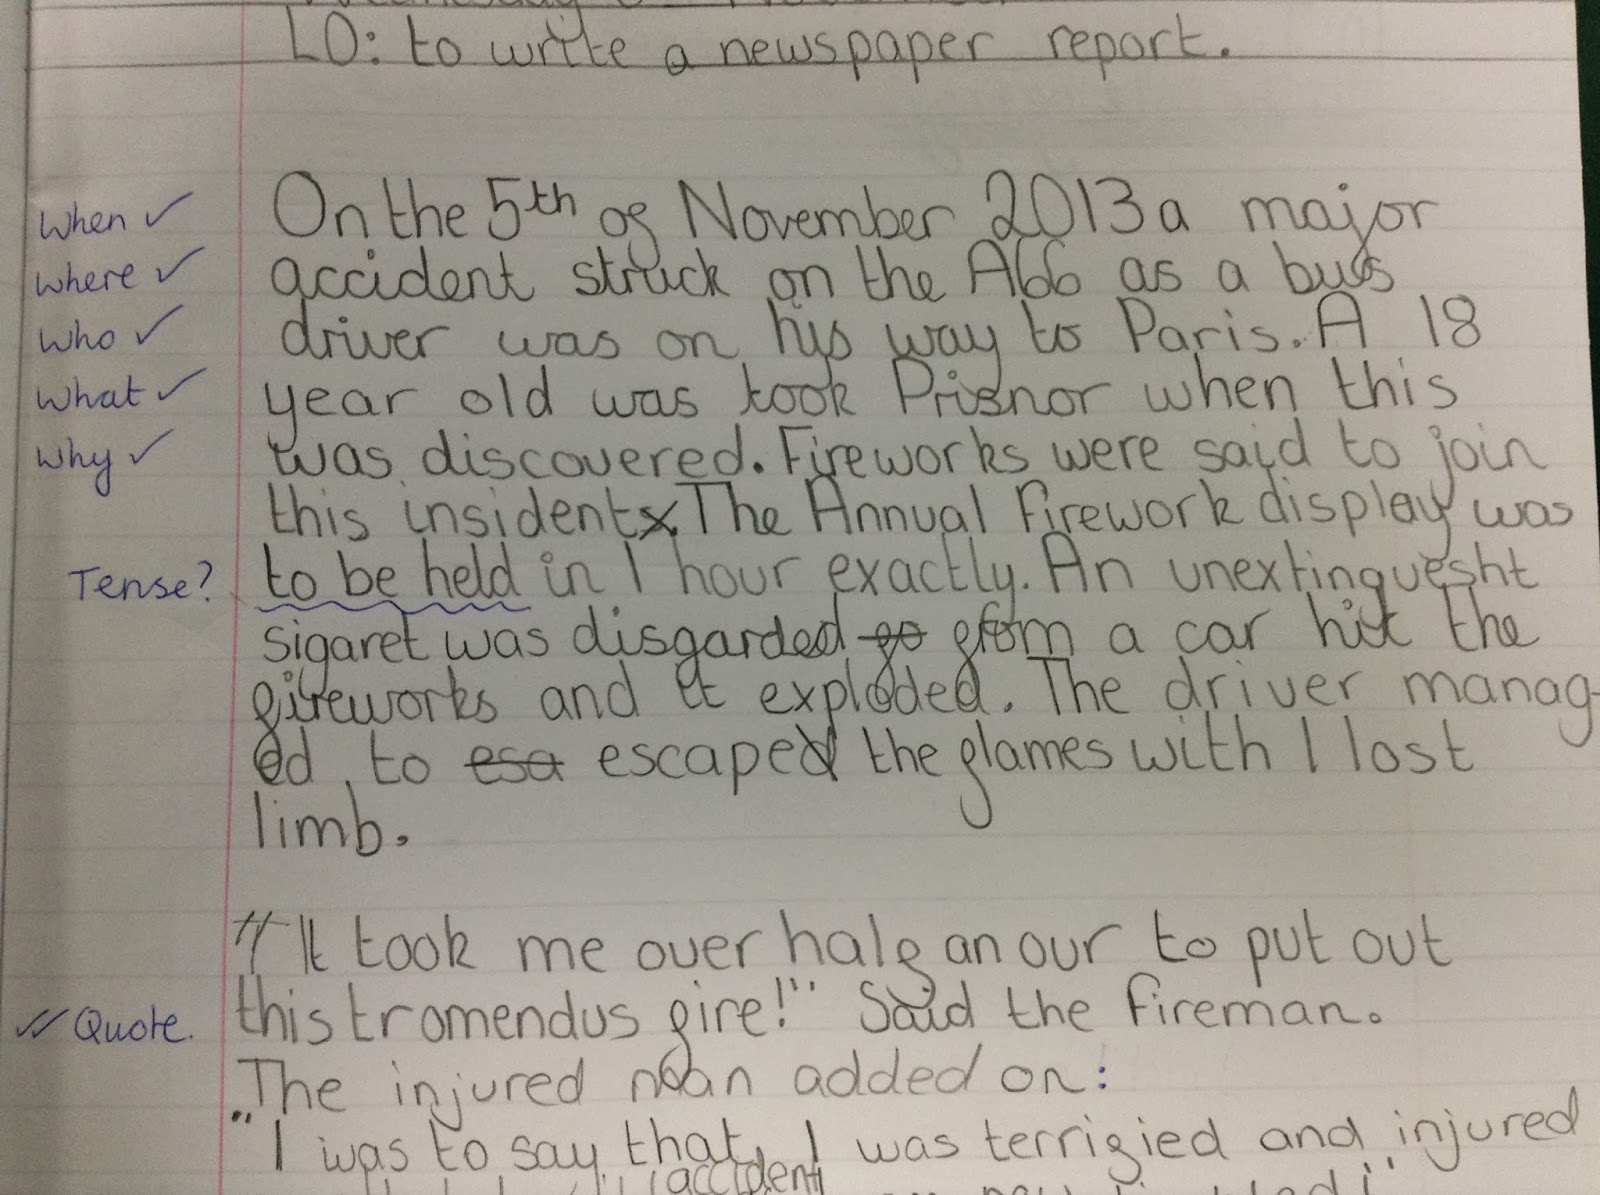 LO: to write a newspaper report.
When ✓ On the 5th of November 2013 a major
Where ✓ accident struck on the A66 as a bus
Who ✓ driver was on his way to Paris. A 18
What ✓ year old was took Prisnor when this
Why ✓ was discovered. Fireworks were said to join
this insident. The Annual Firework display was
Tense? to be held in 1 hour exactly. An unextinguesht
sigaret was disgarded go from a car hit the
fireworks and it exploded. The driver manag-
ed, to esa escaped the flames with 1 lost
limb.
"It took me over half an our to put out
✓✓ Quote. this tromendus fire!" Said the fireman.
The injured man added on:
"I was to say that, I was terrified and injured
accident